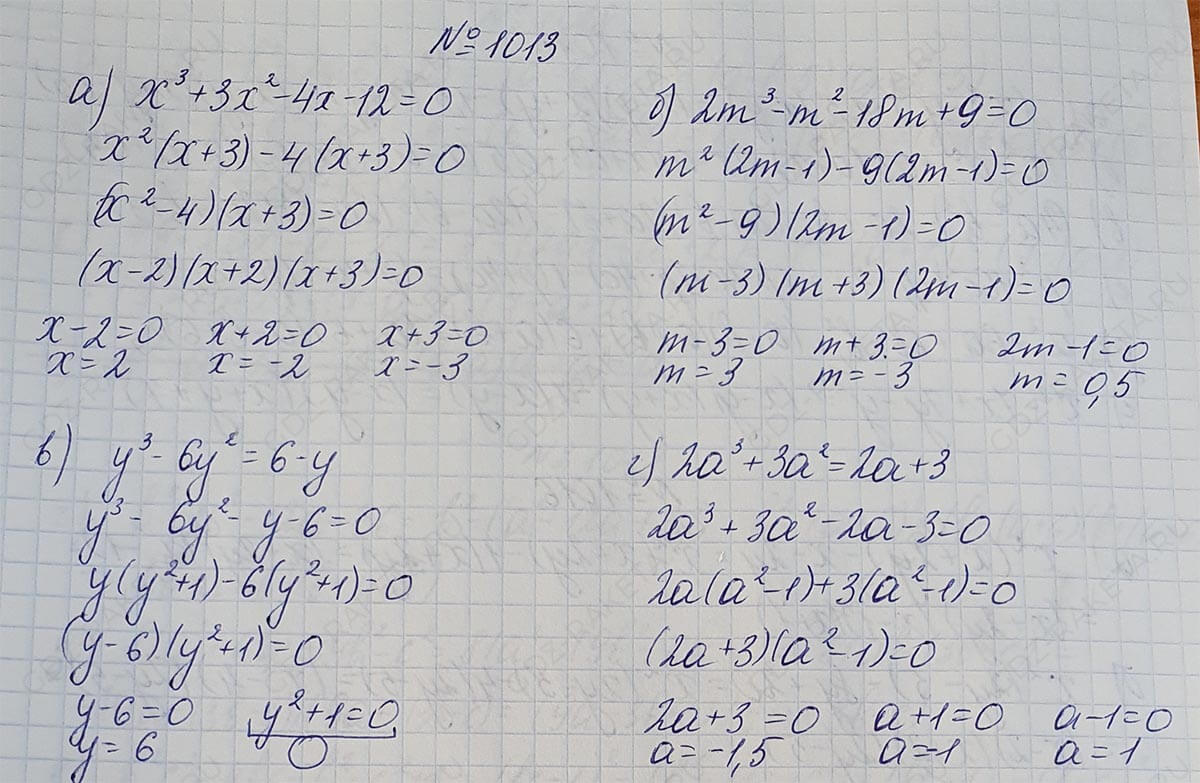 №1013
а) x³+3x²-4x-12=0
x²(x+3)-4(x+3)=0
(x²-4)(x+3)=0
(x-2)(x+2)(x+3)=0
x-2=0 x+2=0 x+3=0
x=2 x=-2 x=-3
б) 2m³-m²-18m+9=0
m²(2m-1)-9(2m-1)=0
(m²-9)(2m-1)=0
(m-3)(m+3)(2m-1)=0
m-3=0 m+3=0 2m-1=0
m=3 m=-3 m=0,5
в) y³-6y²=6-y
y³-6y²-y-6=0
y(y²+1)-6(y²+1)=0
(y-6)(y²+1)=0
y-6=0 y²+1=0
y=6 0
г) 2a³+3a²=2a+3
2a³+3a²-2a-3=0
2a(a²-1)+3(a²-1)=0
(2a+3)(a²-1)=0
2a+3=0 a+1=0 a-1=0
a=-1,5 a=-1 a=1